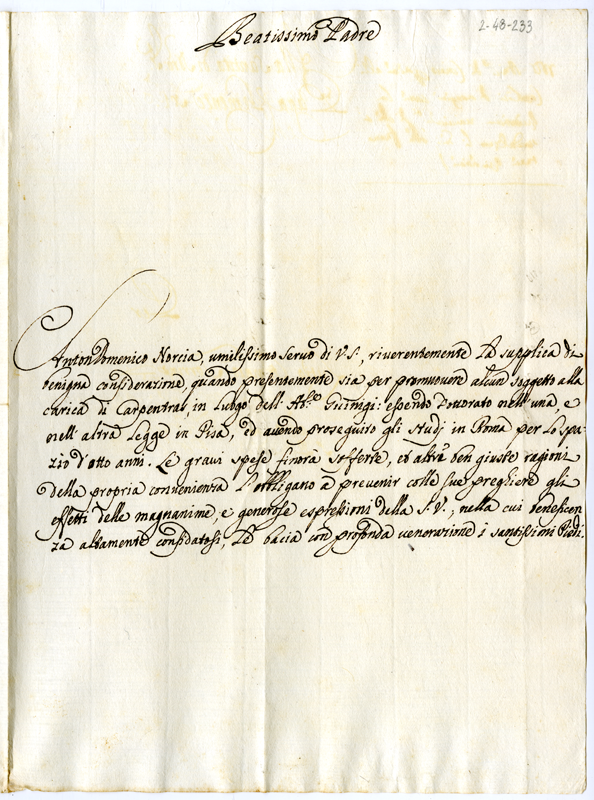 Beatissimo Padre
2-48-233
AntonDomenico Norcia, umilissimo servo di V. S., riverentemente La supplica di
benigna considerazione, quando presentemente sia per promuovere alcun soggetto alla
carica di Carpentras, in luogo dell' Ab.e Guinigi: essendo Dottorato nell' una, e
nell' altra Legge in Pisa, ed avendo proseguito gli studj in Roma per lo spa-
zio d'otto anni. Le gravi spese finora sofferte, et altre ben giuste ragioni
della propria convenienza l'obbligano à prevenir colle sue preghiere gli
effetti delle magnanime, e generose espressioni della S. V., nella cui beneficen
za altamente confidatosi, Le bacia con profonda venerazione i santissimi Piedi.